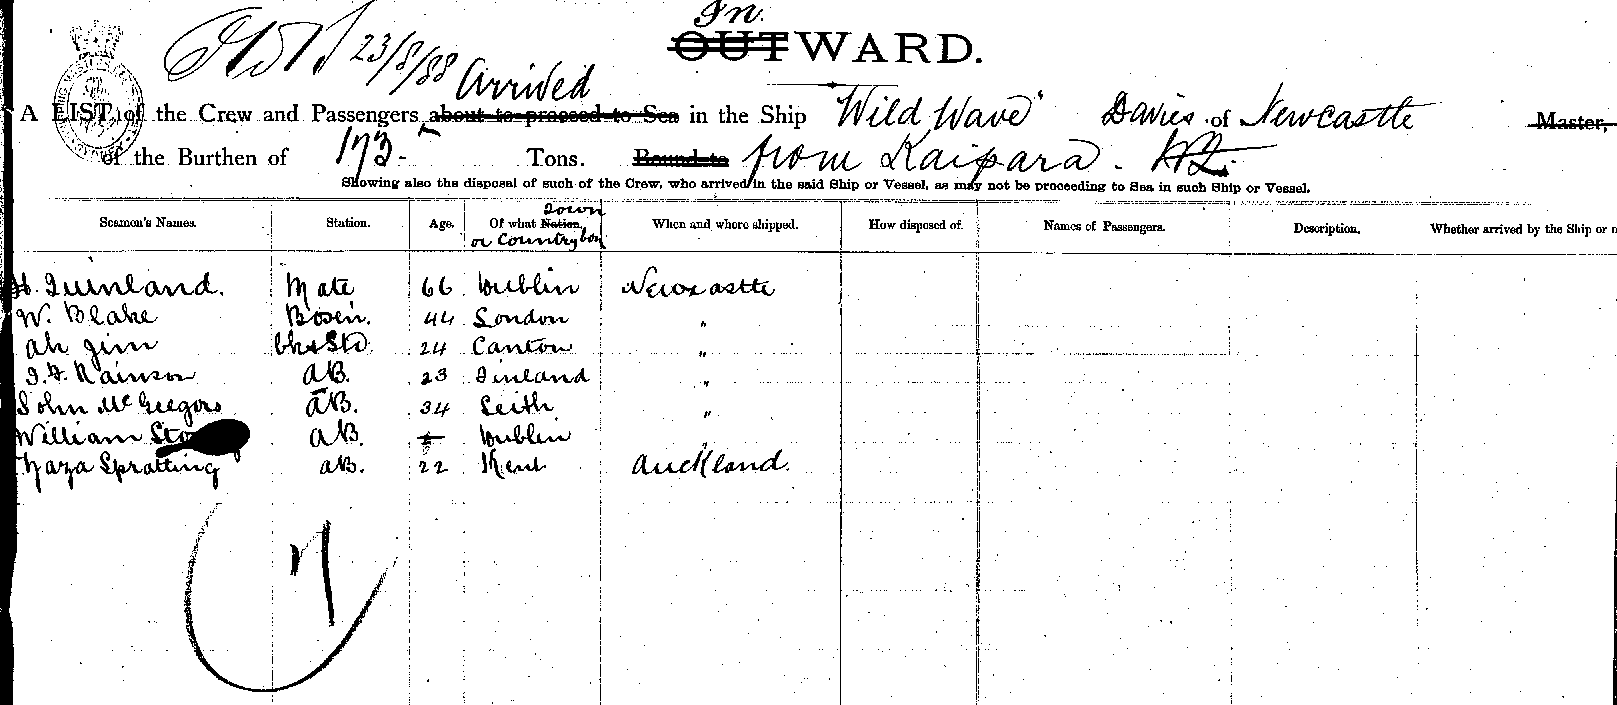 In.
OUTWARD.
23/8/88 Arrived
A LIST of the Crew and Passengers about to proceed to Sea in the Ship "Wild Wave" Davies of Newcastle Master,
of the Burthen of 173 Tons. Bound to from Kaipara. NZ.
Showing also the disposal of such of the Crew, who arrived in the said Ship or Vessel, as may not be proceeding to Sea in such Ship or Vessel.
Seamen's Names. Station. Age. Of what Nation. Town or Country born When and where shipped. How disposed of. Names of Passengers. Description. Whether arrived by the Ship or n
H. Quinland. Mate 66 Dublin Newcastle
W. Blake Bosen. 44 London "
Ah Jim Ck & Std 24 Canton "
AB. 23 Finland "
John McGregors AB. 34 Leith "
William AB. Dublin
Spratting AB. 22 Kent Auckland.
7